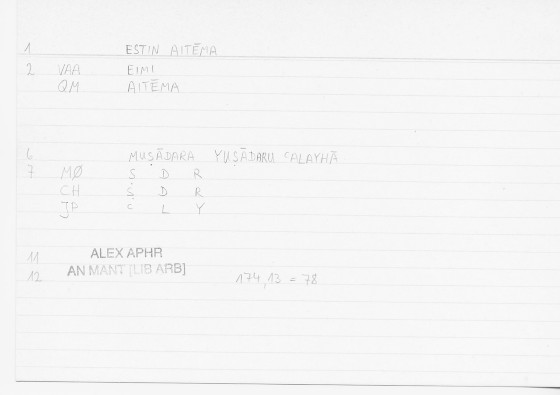 1 ESTIN AITĒMA
2 VAA EIMI
QM AITĒMA
6 MUṢĀDARA YUṢĀDARU ʿALAYHĀ
7 MØ Ṣ D R
CH Ṣ D R
JP ʿ L Y
11 ALEX APHR
12 AN MANT [LIB ARB] 174,13 = 78